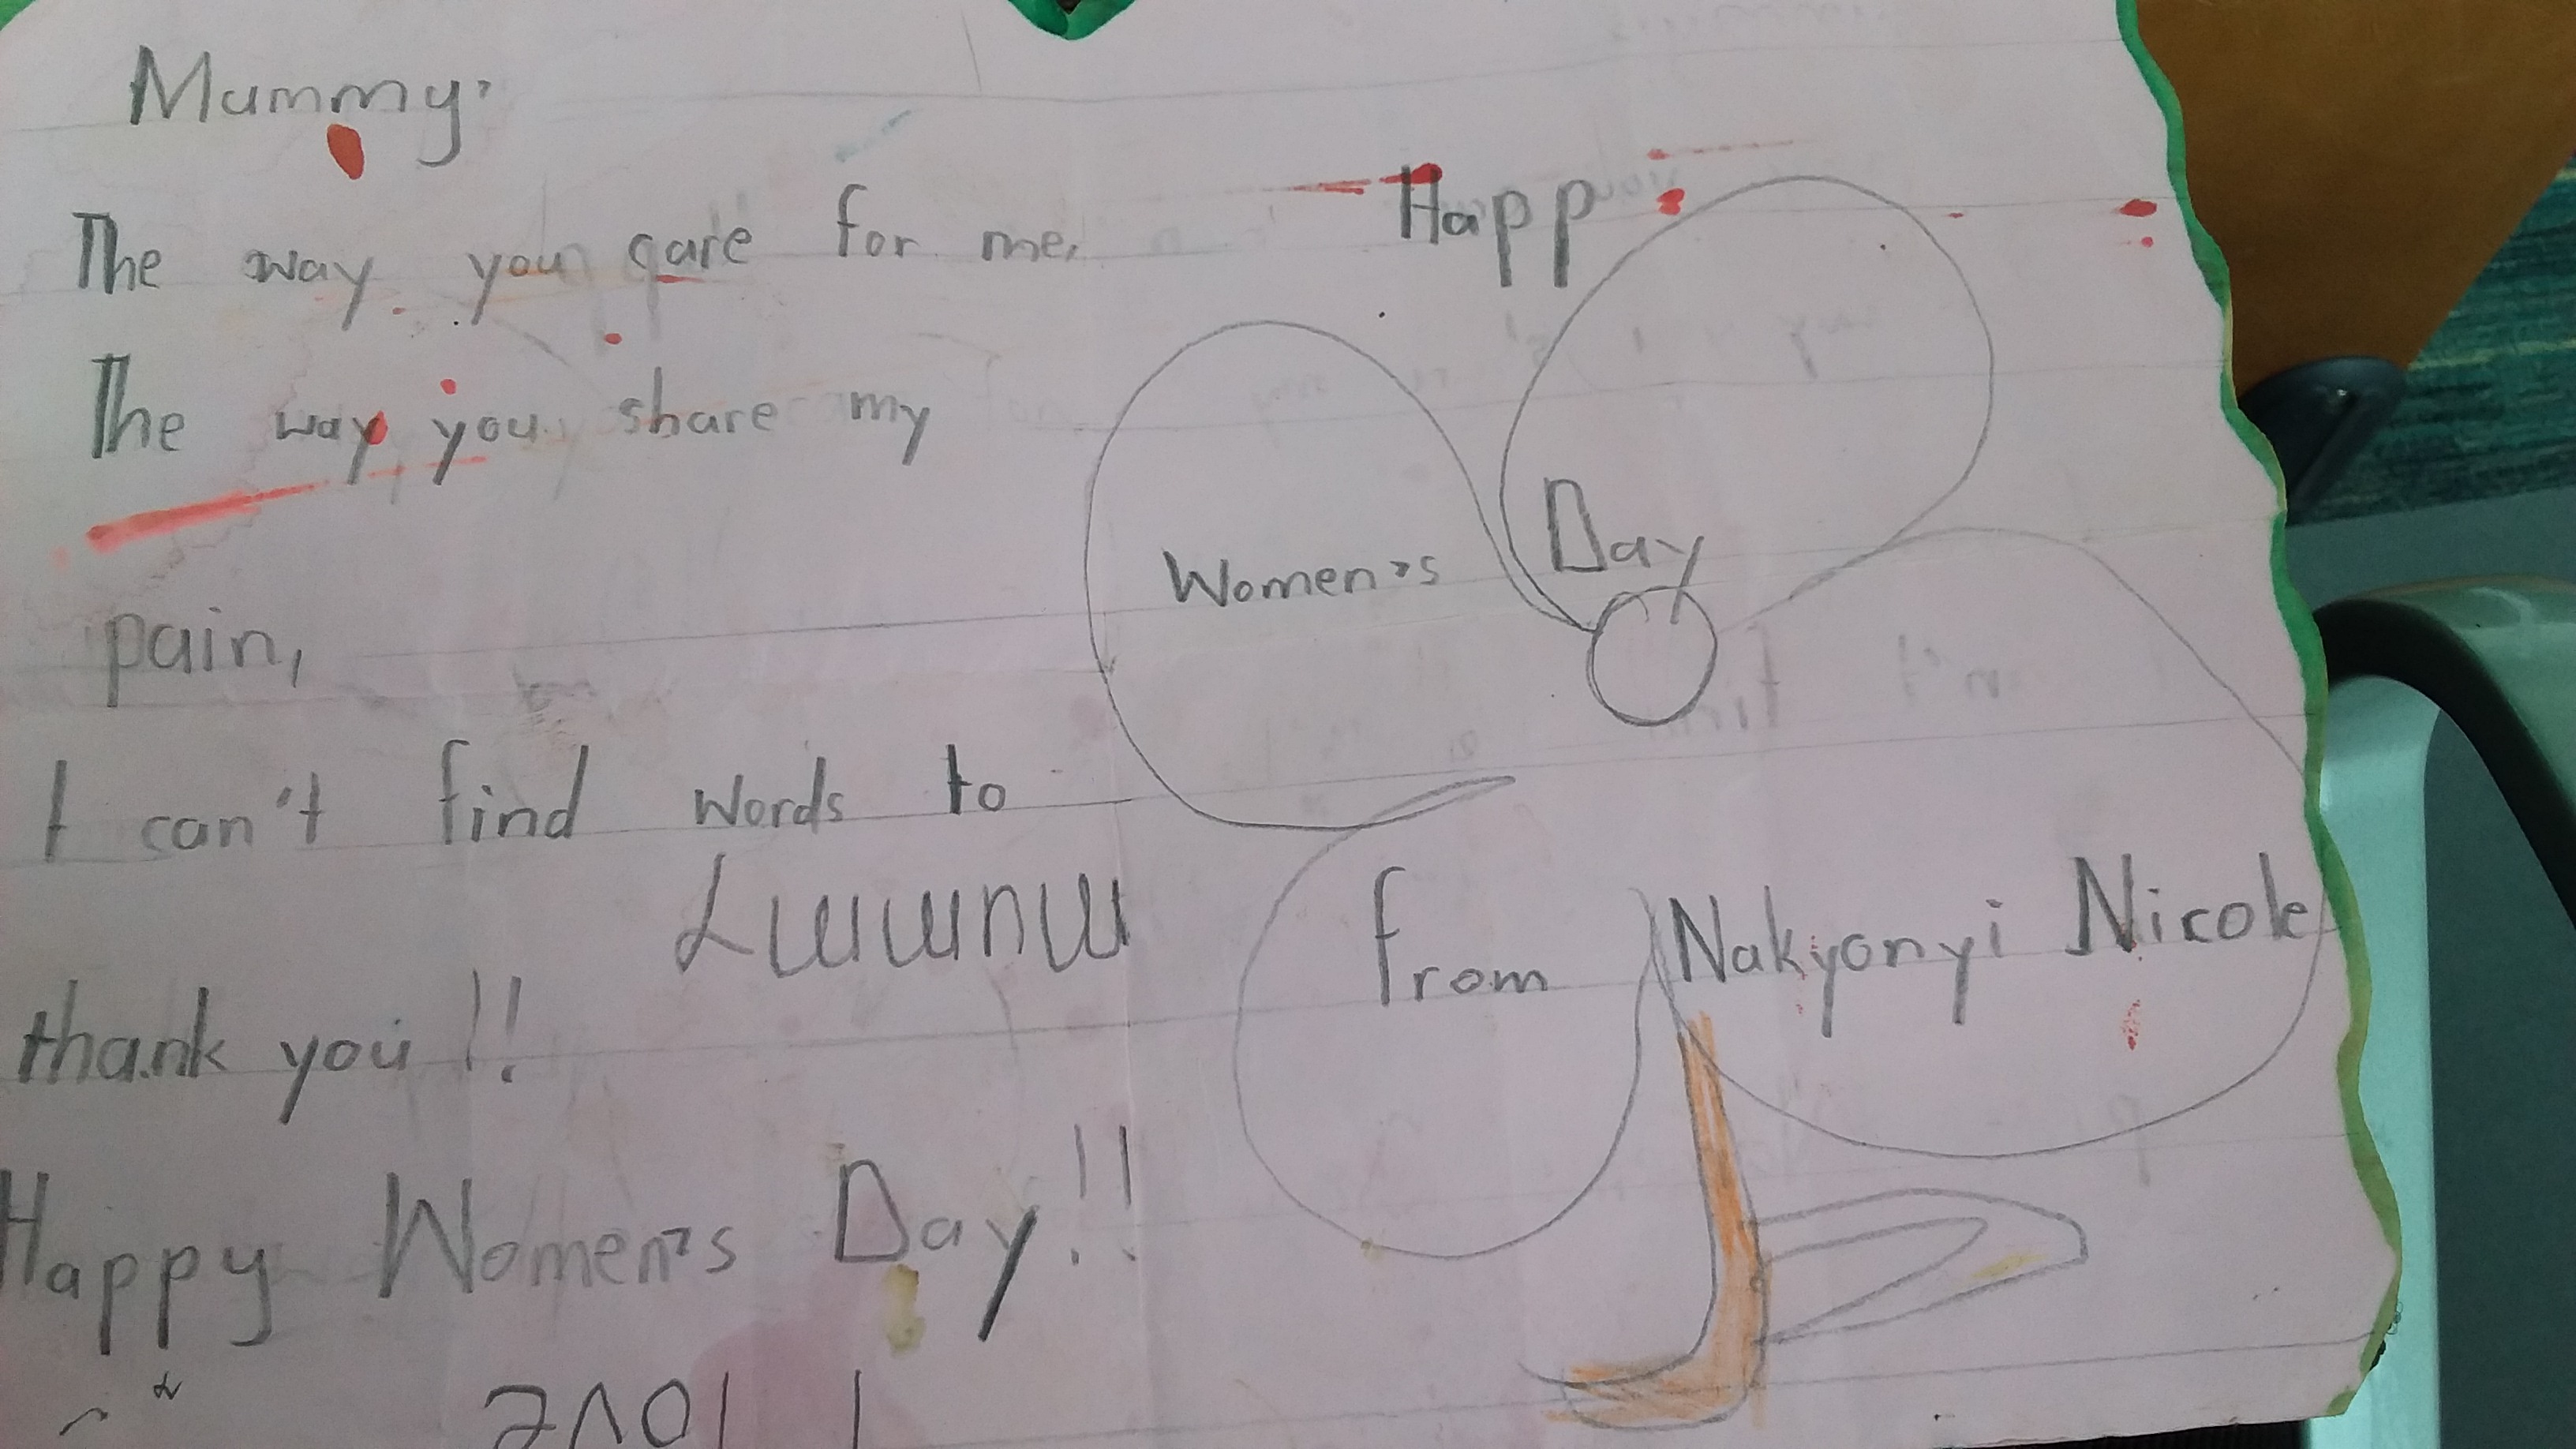 Mummy,
The way you care for me,
The way you share my
pain,
I can't find words to
thank you!!
Happy Women's Day!!
Happ
Women's
Day
from Nakyonyi Nicole